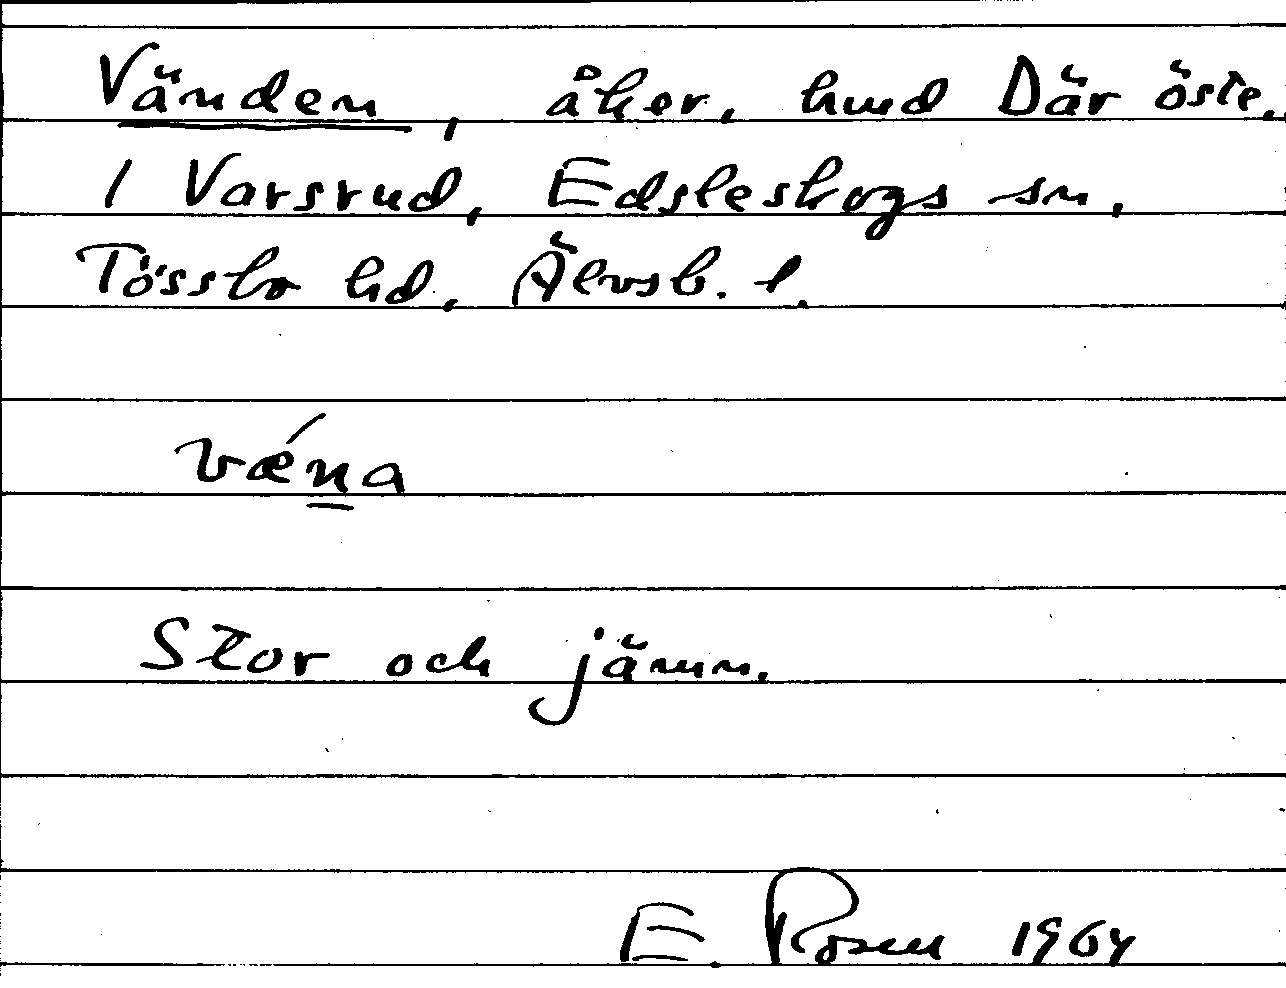 Vänden, åker, hmd Där öste.
1 Varsrud, Edsleskogs sn,
Tössbo hd, Älvsb. l.
vǽna
Stor och jämn.
E. Rosen 1964